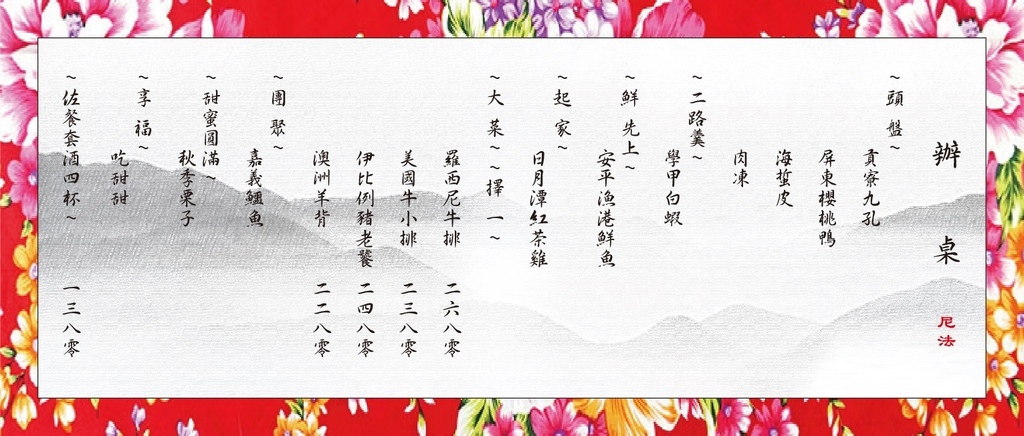 辦桌
尼法
~頭盤~
貢寮九孔
屏東櫻桃鴨
海蜇皮
肉凍
~二路羹~
學甲白蝦
~鮮先上~
安平漁港鮮魚
~起家~
日月潭紅茶雞
~大菜~~擇一~
羅西尼牛排 二六八零
美國牛小排 二三八零
伊比例豬老饕 二四八零
澳洲羊背 二二八零
~團聚~
嘉義鱷魚
~甜蜜圓滿~
秋季栗子
~享福~
吃甜甜
~佐餐套酒四杯~ 一三八零